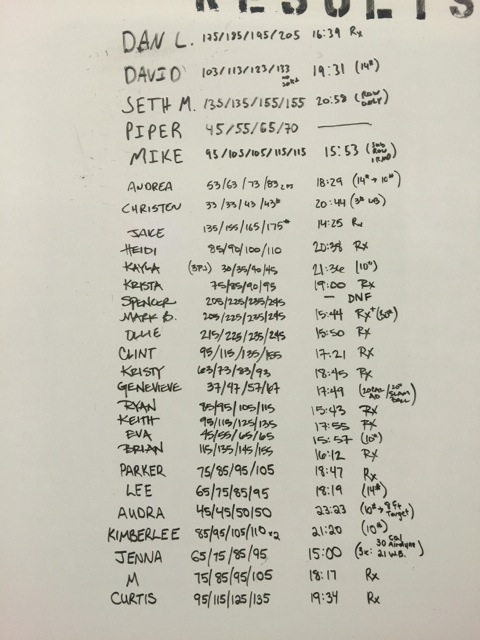 RESULTS
DAN L. 175/185/195/205 16:39 Rx
DAVID 103/113/123/133 19:31 (14#)
SETH M. 135/135/155/155 20:58 (ROW ONLY)
PIPER 45/55/65/70 —
MIKE 95/105/105/115/115 15:53 (SUB ROW 1 RND)
ANDREA 53/63/73/83 18:29 (14#→10#)
CHRISTEN 33/33/43/43# 20:44 (3# WB)
JAKE 135/155/165/175# 14:25 Rx
HEIDI 85/90/100/110 20:38 Rx
KAYLA (BPJ) 30/35/40/45 21:36 (10#)
KRISTA 75/85/90/95 19:00 Rx
SPENCER 205/225/235/245 — DNF
MARK B. 205/225/235/245 15:44 Rx+ (30#)
OLLIE 215/225/235/245 15:50 Rx
CLINT 95/115/135/155 17:21 Rx
KRISTY 63/73/83/93 18:45 Rx
GENEVIEVE 37/47/57/67 17:49 (20CAL AD/20# SLAM BALL)
RYAN 85/95/105/115 15:43 Rx
KEITH 95/115/125/135 17:55 Rx
EVA 45/55/65/65 15:57 (10#)
BRIAN 115/135/145/155 16:12 Rx
PARKER 75/85/95/105 18:47 Rx
LEE 65/75/85/95 18:19 (14#)
AUDRA 45/45/50/50 23:23 (10#→9 ft Target)
KIMBERLEE 85/95/105/110 x2 21:20 (10#)
JENNA 65/75/85/95 15:00 (3x: 30 Cal Airdyne 21 W.B.)
M 75/85/95/105 18:17 Rx
CURTIS 95/115/125/135 19:34 Rx